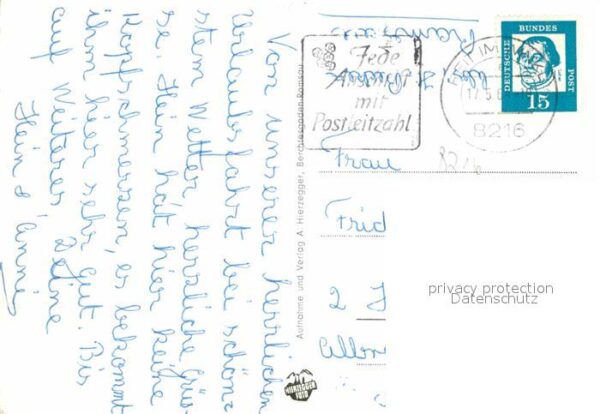 Von unserer herrlichen
Urlaubsfahrt bei schön-
stem Wetter herzliche Grüs-
se. Hein hat hier keine
Kopfschmerzen, es bekommt
ihm hier sehr gut. Bis
auf Weiteres Deine
Hein & Anni
Aufnahme und Verlag A. Hierzegger, Berchtesgaden-Ramsau
HIERZEGGER
FOTO
Ramsau
Jede
mit
Postleitzahl
REIT IM
17.5.6
8216
DEUTSCHE
BUNDES
POST
15
8216
Frau
Frid
2
privacy protection
Datenschutz